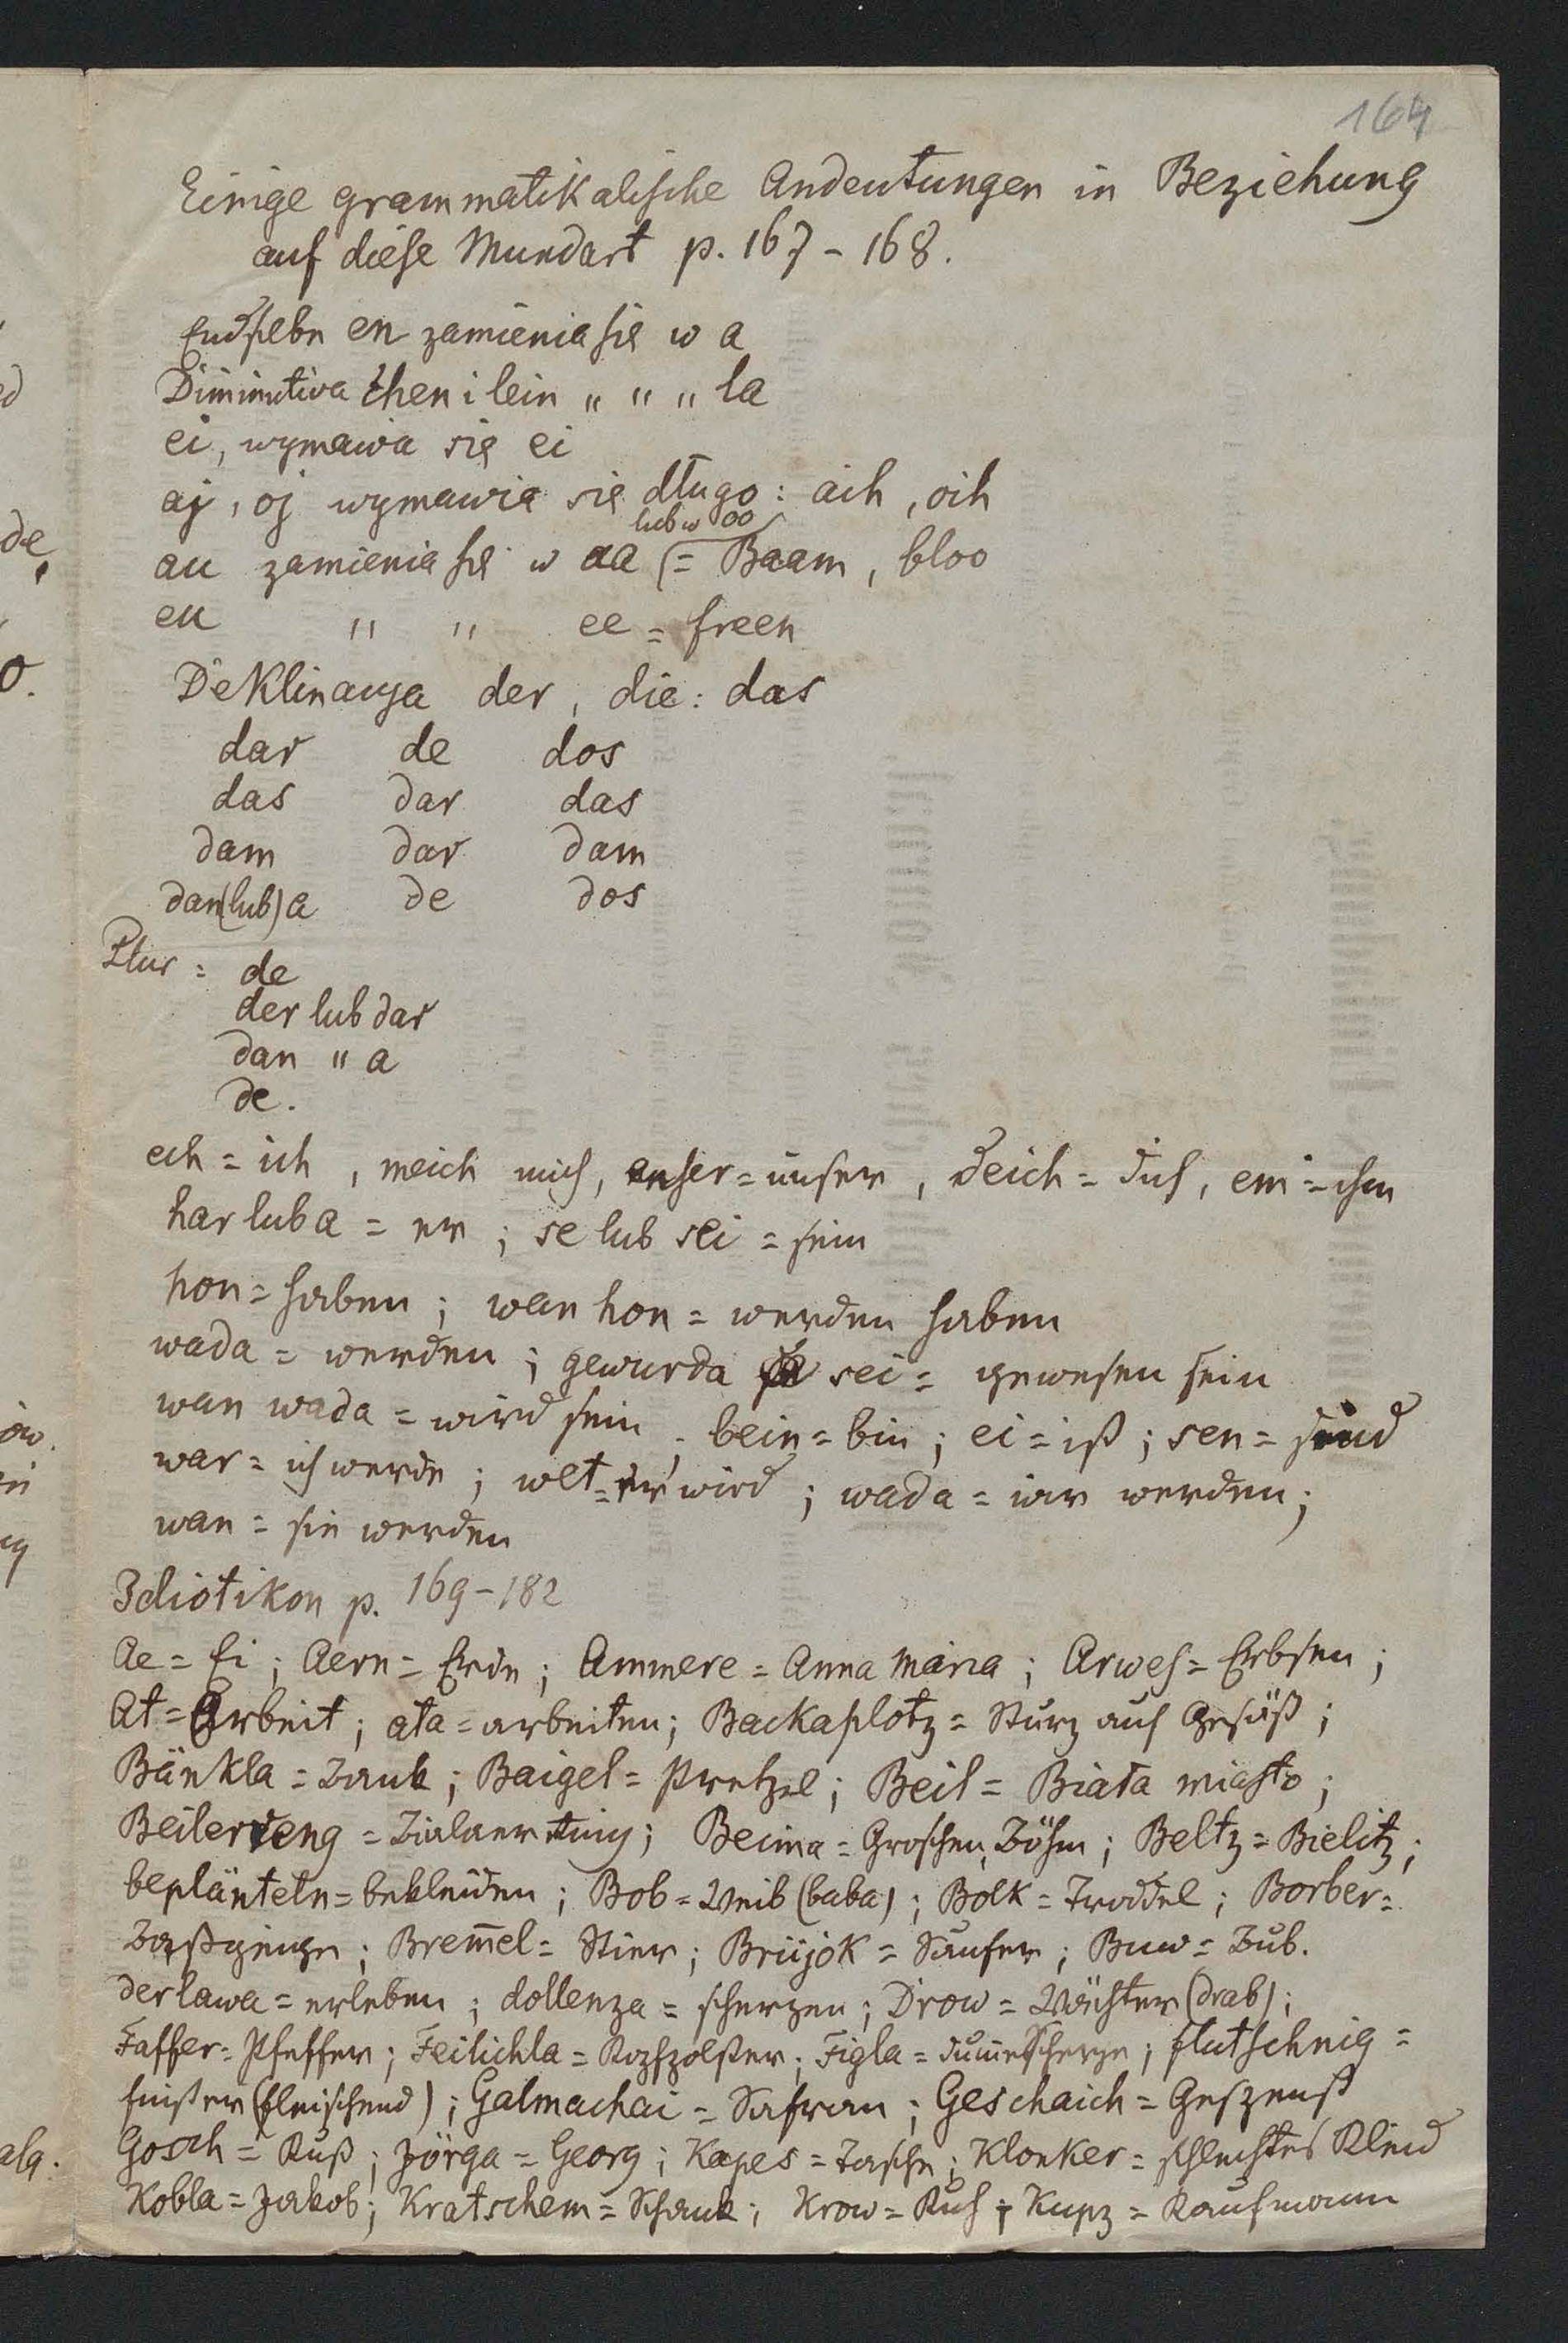 164
Einige grammatikalische Andeutungen in Beziehung
auf diese Mundart p. 167 - 168.
Endsilbe en zamienia się w a
Diminutiva chen i lein " " " la
ei, wymawia się ei
aj, oj wymawia się długo: aih, oih
lub w oo
au zamienia się w aa (= Baam, bloo
eu " " ee = freen
Deklinacya der, die: das
dar de dos
das dar das
dam dar dam
dan (lub) a de dos
Plur: de
der lub dar
dan " a
de.
ech = ich, meich mich, enser = unser, deich = dich, em = ihm
har lub a = er; se lub sei = sein
hon = haben; wan hon = werden haben
wada = werden; gewurda sei = gewesen sein
wan wada = wird sein, bein = bin; ei = ist; sen = sind
war = ich werde; wet = er wird; wada = wir werden;
wan = sie werden
Idiotikon p. 169-182
Ae = Ei; Aern = Erde; Ammere = Anna Maria; Arwes = Erbsen;
At = Arbeit; ata = arbeiten; Backaplotz = Sturz auf Gesäß;
Bänkla = Bank; Baigel = Pretzel; Beil = Biała miasto;
Beilerreng = Bialaer Ring; Beima = Groschen, Böhm; Beltz = Bielitz;
beplänteln = bekleiden; Bob = Weib (baba); Bolk = Troddel; Borber =
Baßgeige; Bremel = Stier; Brüjok = Säufer; Buw = Bub.
derlawa = erleben; dollenza = scherzen; Drow = Wächter (drab);
Faffer = Pfeffer; Feilichla = Figla = dumme Scherze; flutschnig =
(fleischend); Galmachai = Safran; Geschaich = Gespenst
Gosch = Kuß; Jörga = Georg; Kapes = Tasche; Klonker = schlechtes Kleid
Kobla = Jakob; Kratschem = Schank; Krow = Kuh; Kupz = Kaufmann